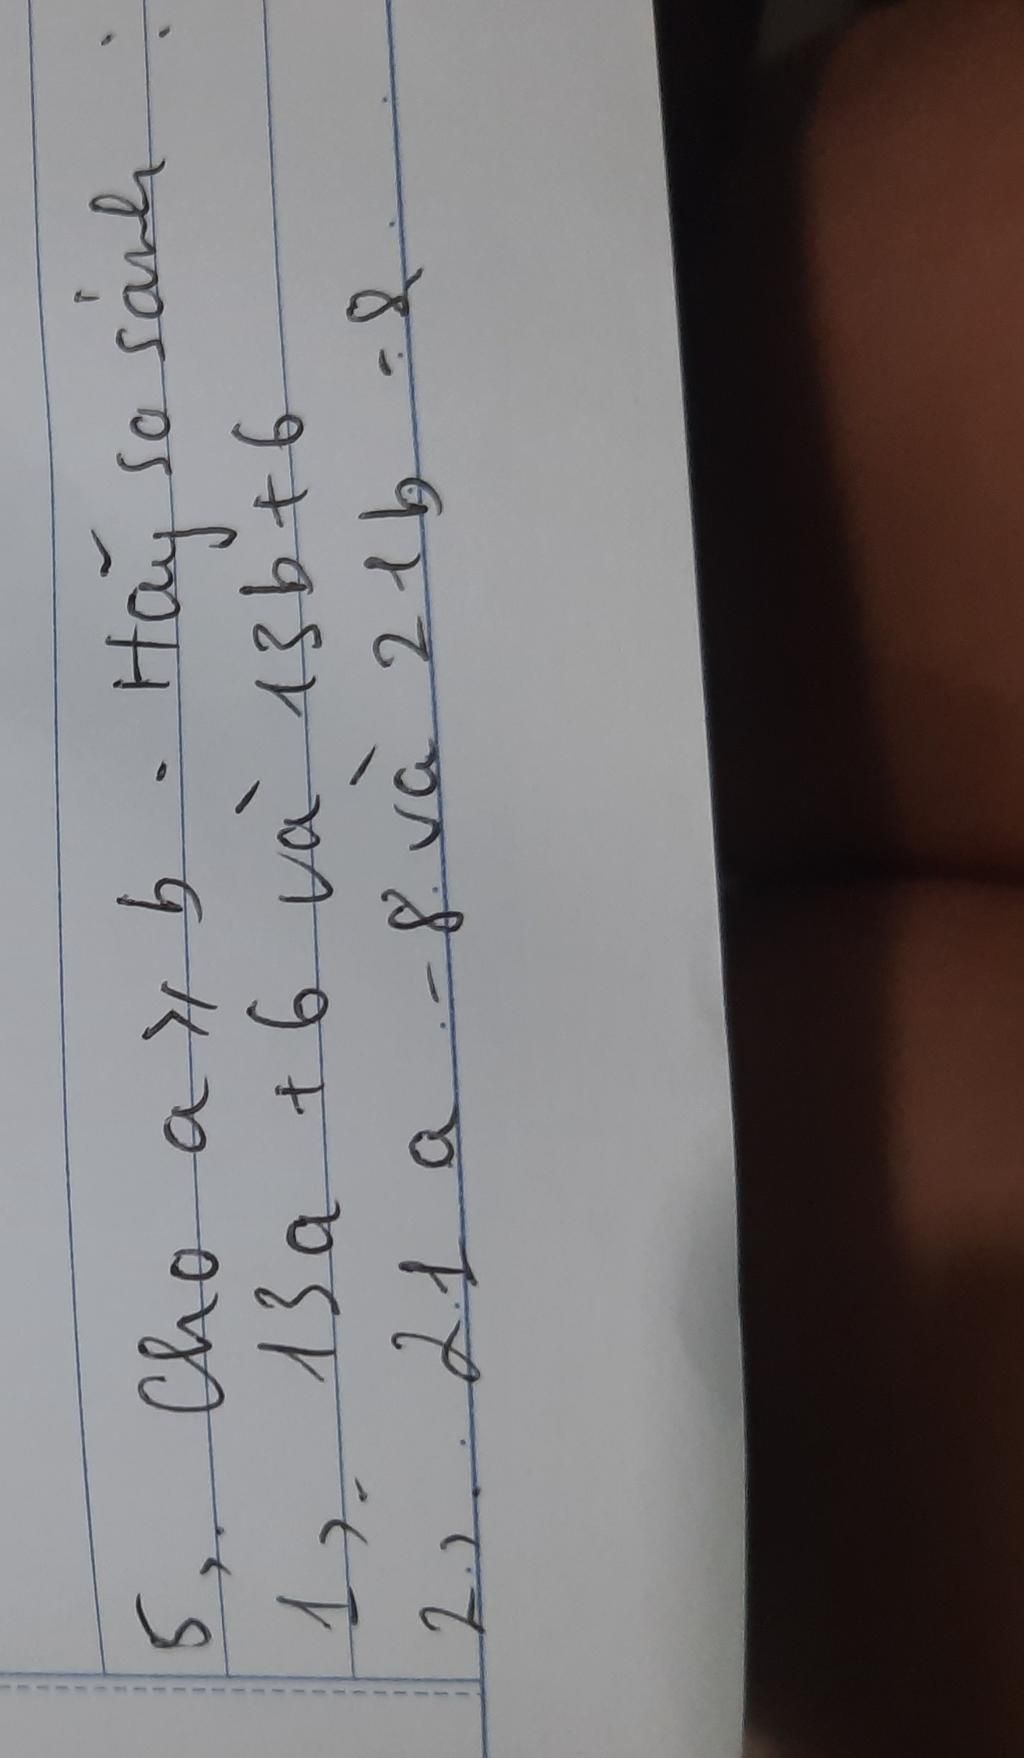 5, Cho a ≥ b. Hãy so sánh :
1, 13a + 6 và 13b + 6
2, 21 a - 8 và 21b - 8